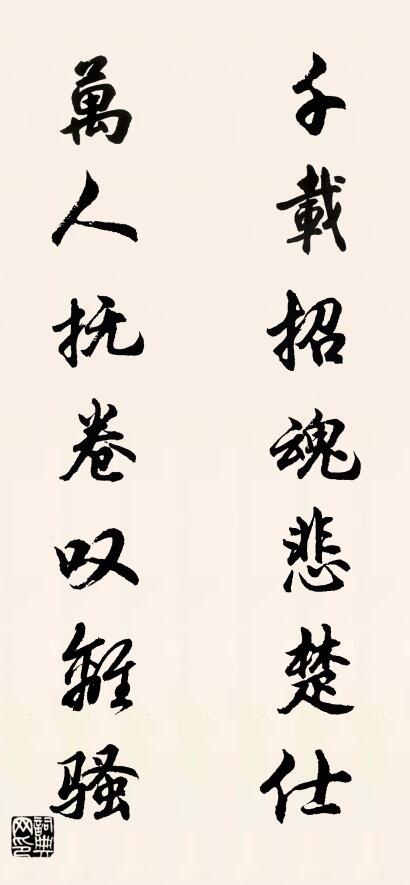 千載招魂悲楚仕
萬人抚卷叹離骚
詞典网印